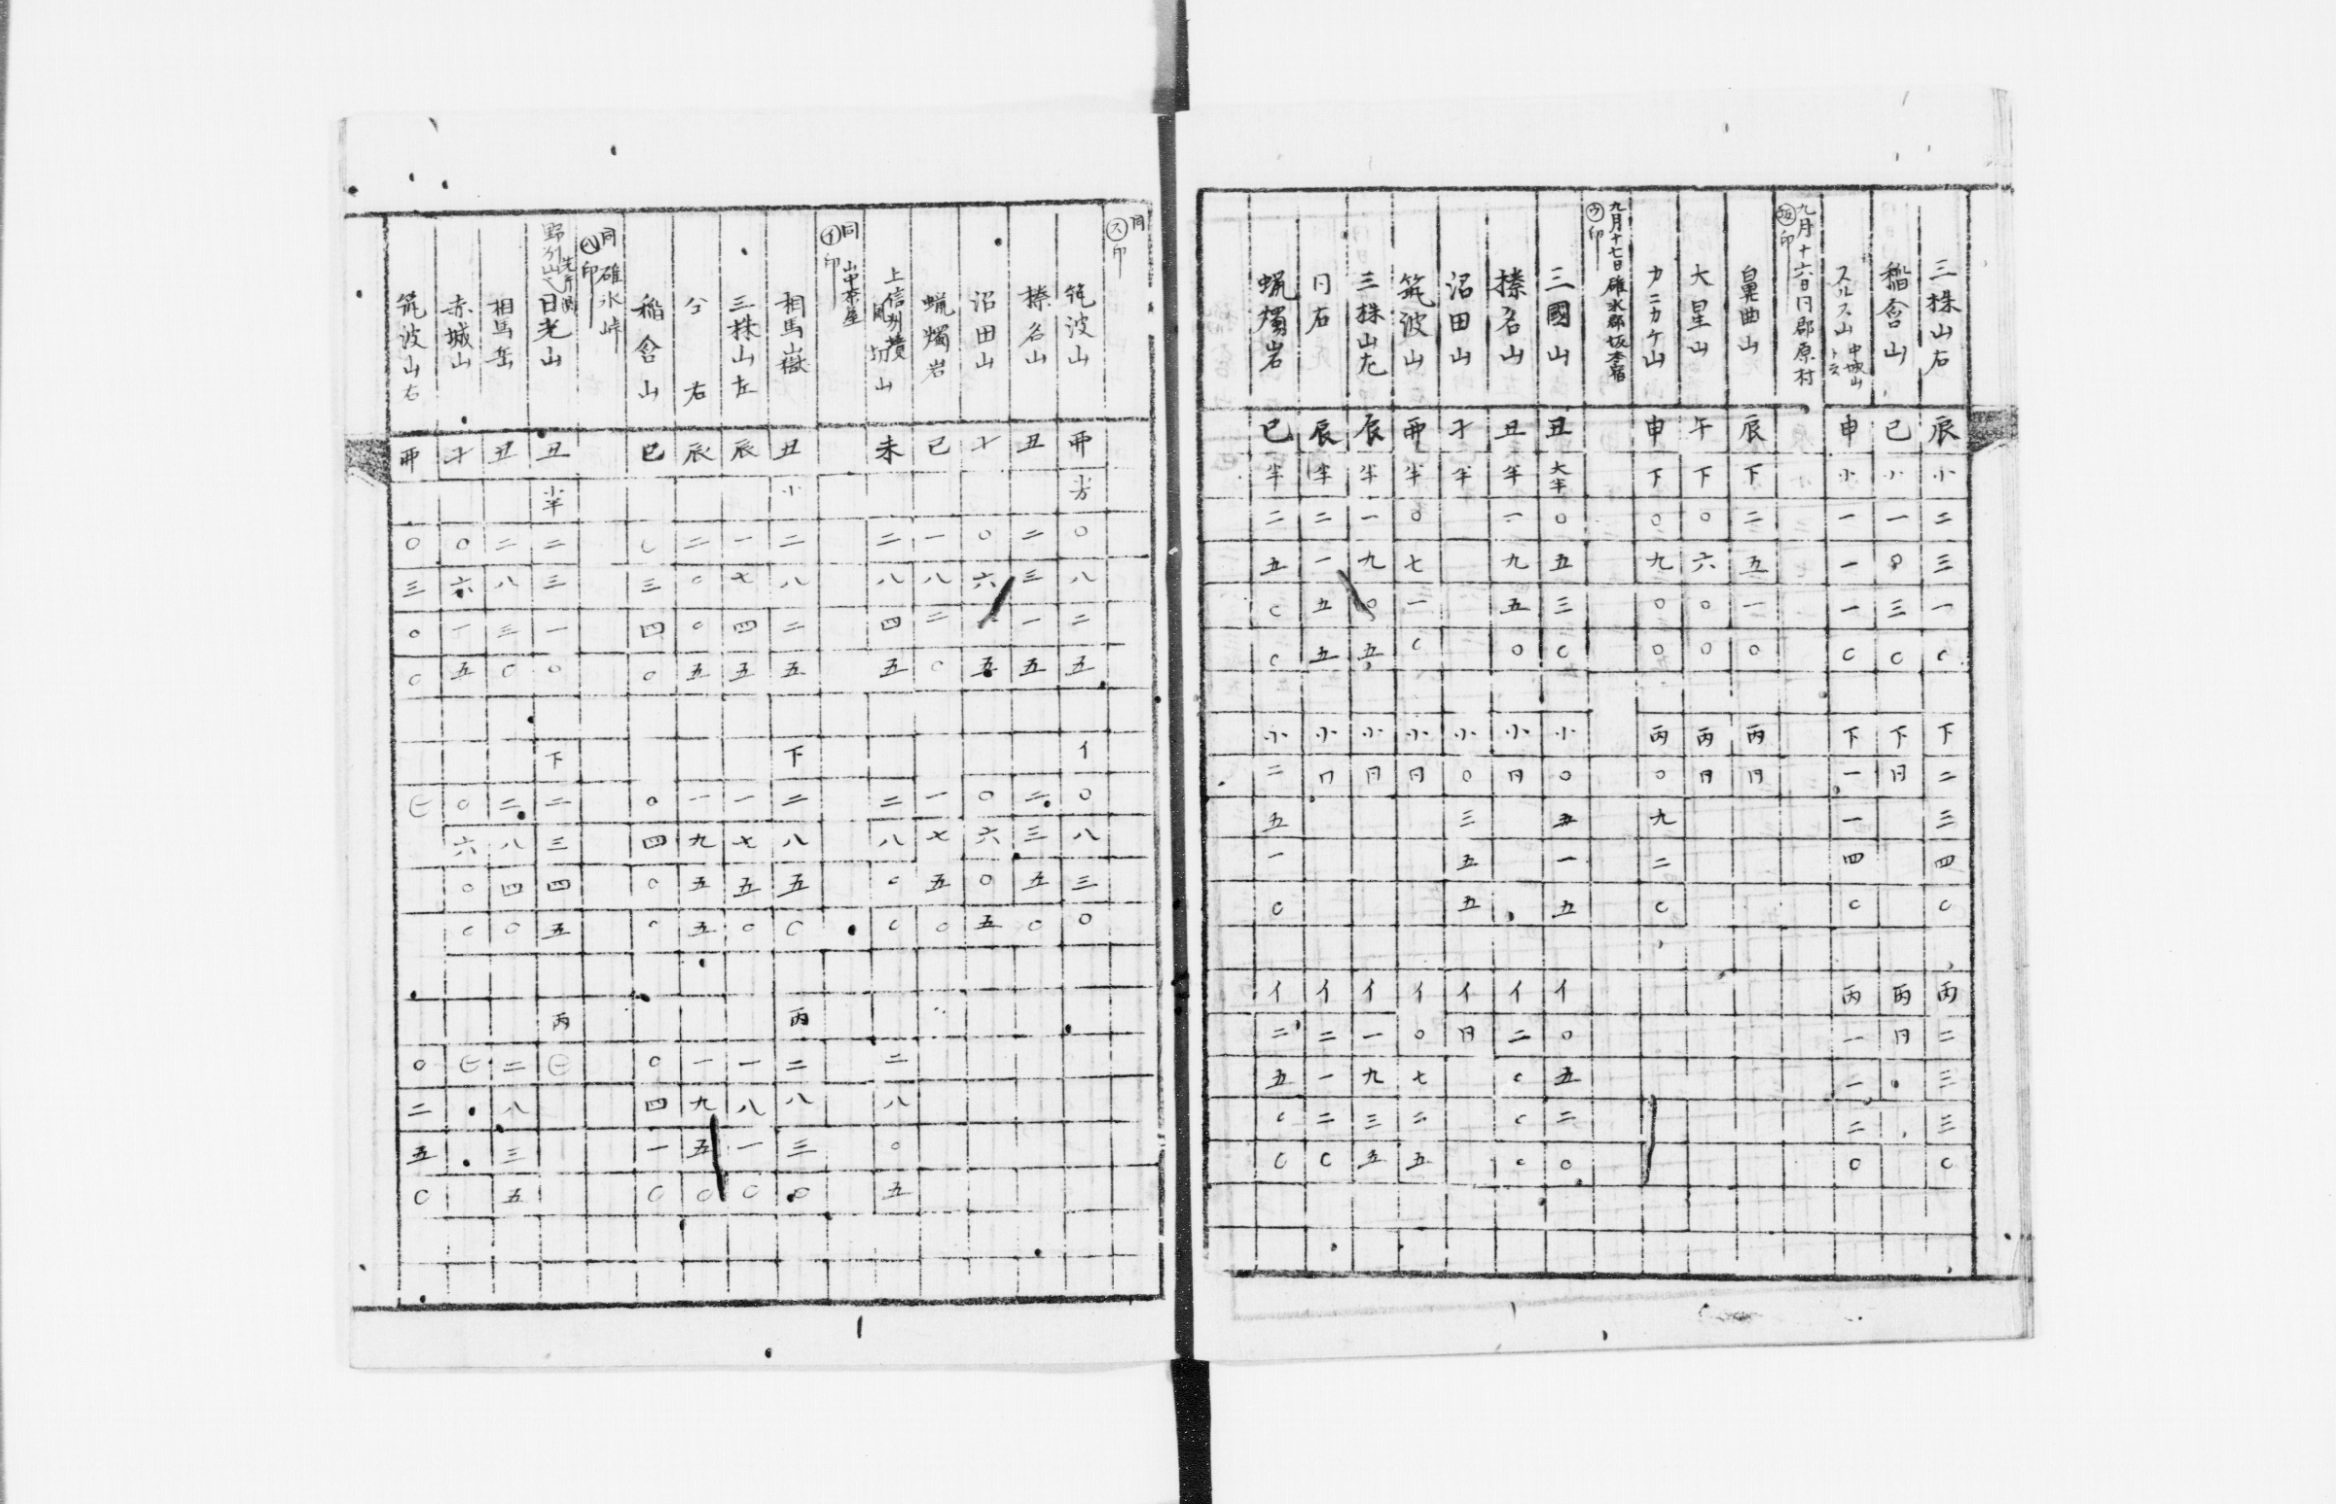 三株山右 辰 小 二 三 一 〇 下 二 三 四 〇 丙 二 三 三 〇
稲含山 巳 小 一 〇 三 〇 下 同 丙 同
スルス山 中城山トス 申 小 一 一 一 〇 下 一 一 四 〇 丙 一 一 二 〇
九月十六日同郡原村
坂印
鼻曲山 辰 下 二 五 一 〇 丙 同
大星山 午 下 〇 六 〇 〇 丙 同
カニカケ山 申 下 〇 九 〇 〇 丙 〇 九 二 〇
九月十七日碓氷郡坂本宿
ウ印
三國山 丑 大半 〇 五 三 〇 小 〇 五 一 五 イ 〇 五 二 〇
榛名山 丑 半 一 九 五 〇 小 同 イ 二 〇 〇 〇
沼田山 子 半 小 〇 三 五 五 イ 同
筑波山 卯 半 〇 七 一 〇 小 同 イ 〇 七 二 五
三株山左 辰 半 一 九 〇 五 小 同 イ 一 九 三 五
同右 辰 半 二 一 五 五 小 同 イ 二 一 二 〇
蝋燭岩 巳 半 二 五 〇 〇 小 二 五 一 〇 イ 二 五 〇 〇
同
ス印
筑波山 卯 〇 八 二 五 イ 〇 八 三 〇
榛名山 丑 二 三 一 五 二 三 五 〇
沼田山 子 〇 六 五 〇 六 〇 五
蝋燭岩 巳 一 八 二 〇 一 七 五 〇
上信州境 風切山 未 二 八 四 五 二 八 〇 〇 二 八 〇 五
同 山中茶屋
イ印
相馬嶽 丑 小 二 八 二 五 下 二 八 五 〇 丙 二 八 三 〇
三株山左 辰 一 七 四 五 一 七 五 〇 一 八 一 〇
仝右 辰 二 〇 〇 五 一 九 五 五 一 九 五 〇
稲含山 巳 〇 三 四 〇 〇 四 〇 〇 〇 四 一 〇
同 碓氷峠
ハ印
日光山 丑 小半 二 三 一 〇 下 二 三 四 五 丙 ㊀
相馬岳 丑 二 八 三 〇 二 八 四 〇 二 八 三 五
赤城山 子 〇 六 一 五 〇 六 〇 〇 ㊀
筑波山右 卯 〇 三 〇 〇 ㊀ 〇 二 五 〇